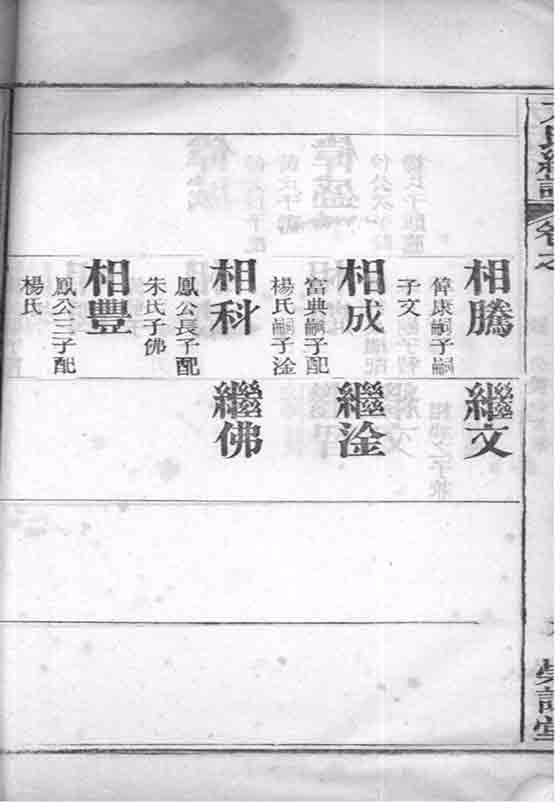 相騰
偉康嗣子嗣
子文
繼文
相成
富典嗣子配
楊氏嗣子淦
繼淦
相科
鳳公長子配
朱氏子佛
繼佛
相豐
鳳公三子配
楊氏